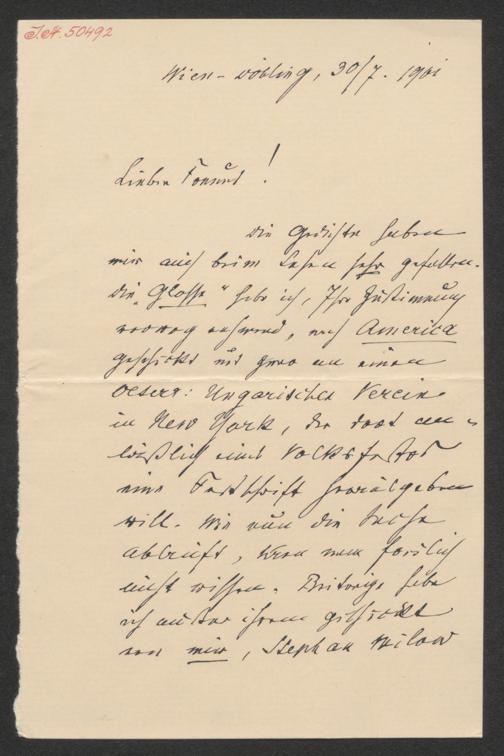 J.N. 50492
Wien-Döbling, 30/7. 1901
Lieber Freund!
Die Gedichte haben
mir auch beim Lesen sehr gefallen.
Die „Glosse“ habe ich, Ihre Zustimmung
vorweg nehmend, nach America
geschickt und zwar an einen
Oesterr: Ungarischen Verein
in New York, der dort an-
läßlich eines Volksfestes
eine Festschrift herausgeben
will. Wie nun die Sache
abläuft, kann man freilich
nicht wissen. Beiträge habe
ich außer ihrem geschickt
von mir, Stephan Milow